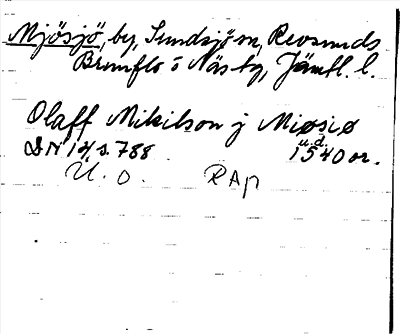 Mjösjö, by, Sundsjö sn, Revsunds
Brunflo o Näs tg, Jämtl. l.
Olaff Mikilson j Miøsiø
DN 14, s. 788 u.d. 1540 or.
U. O. RAp